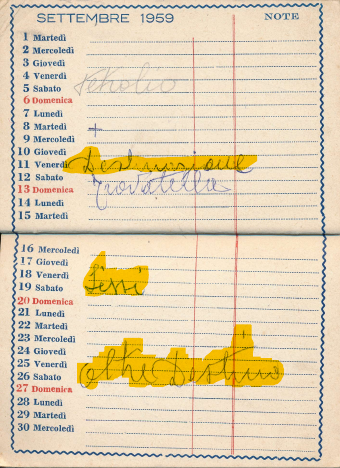 SETTEMBRE 1959 NOTE
1 Martedì
2 Mercoledì
3 Giovedì
4 Venerdì
5 Sabato
6 Domenica
7 Lunedì
8 Martedì +
9 Mercoledì
10 Giovedì
11 Venerdì Destinazione
12 Sabato
13 Domenica Trovatella
14 Lunedì
15 Martedì
16 Mercoledì
17 Giovedì
18 Venerdì
19 Sabato Sissi
20 Domenica
21 Lunedì
22 Martedì
23 Mercoledì
24 Giovedì
25 Venerdì
26 Sabato oltre Destino
27 Domenica
28 Lunedì
29 Martedì
30 Mercoledì